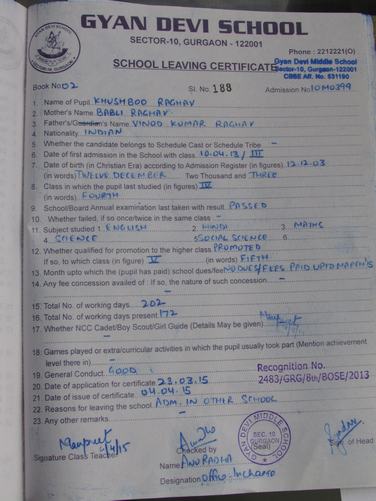 GYAN DEVI SCHOOL
SECTOR-10, GURGAON - 122001
Phone : 2212221(O)
SCHOOL LEAVING CERTIFICATE
Gyan Devi Middle School
Sector-10, Gurgaon-122001
CBSE Aff. No. 531190
Book No 02 Sl. No. 188 Admission No 10M0399
1. Name of Pupil KHUSHBOO RAGHAV
2. Mother's Name BABLI RAGHAV
3. Father's/Guardian's Name VINOD KUMAR RAGHAV
4. Nationality INDIAN
5. Whether the candidate belongs to Schedule Cast or Schedule Tribe -
6. Date of first admission in the School with class 10.04.13 / III
7. Date of birth (in Christian Era) according to Admission Register (in figures) 12.12.03
(in words) TWELVE DECEMBER Two Thousand and THREE
8. Class in which the pupil last studied (in figures) IV
(in words) FOURTH
9. School/Board Annual examination last taken with result PASSED
10. Whether failed, if so once/twice in the same class -
11. Subject studied 1. ENGLISH 2. HINDI 3. MATHS
4. SCIENCE 5. SOCIAL SCIENCE 6.
12. Whether qualified for promotion to the higher class PROMOTED
If so, to which class (in figure) V (in words) FIFTH
13. Month upto which the (pupil has paid) school dues/fee NO DUES/FEES PAID UPTO MARCH'15
14. Any fee concession availed of : If so, the nature of such concession. -
15. Total No. of working days 202
16. Total No. of working days present 172
17. Whether NCC Cadet/Boy Scout/Girl Guide (Details May be given)
18. Games played or extra/curricular activities in which the pupil usually took part (Mention achievement
level there in) -
19. General Conduct GOOD
20. Date of application for certificate 23.03.15
21. Date of issue of certificate 04.04.15
22. Reasons for leaving the school ADM. IN OTHER SCHOOL
23. Any other remarks. -
Recognition No.
2483/GRG/8th/BOSE/2013
Signature Class Teacher
Checked by
Name ANURADHA
Designation Office-Incharge
GYAN DEVI MIDDLE SCHOOL
SEC. 10
GURGAON
(Seal)
Sign. of Head